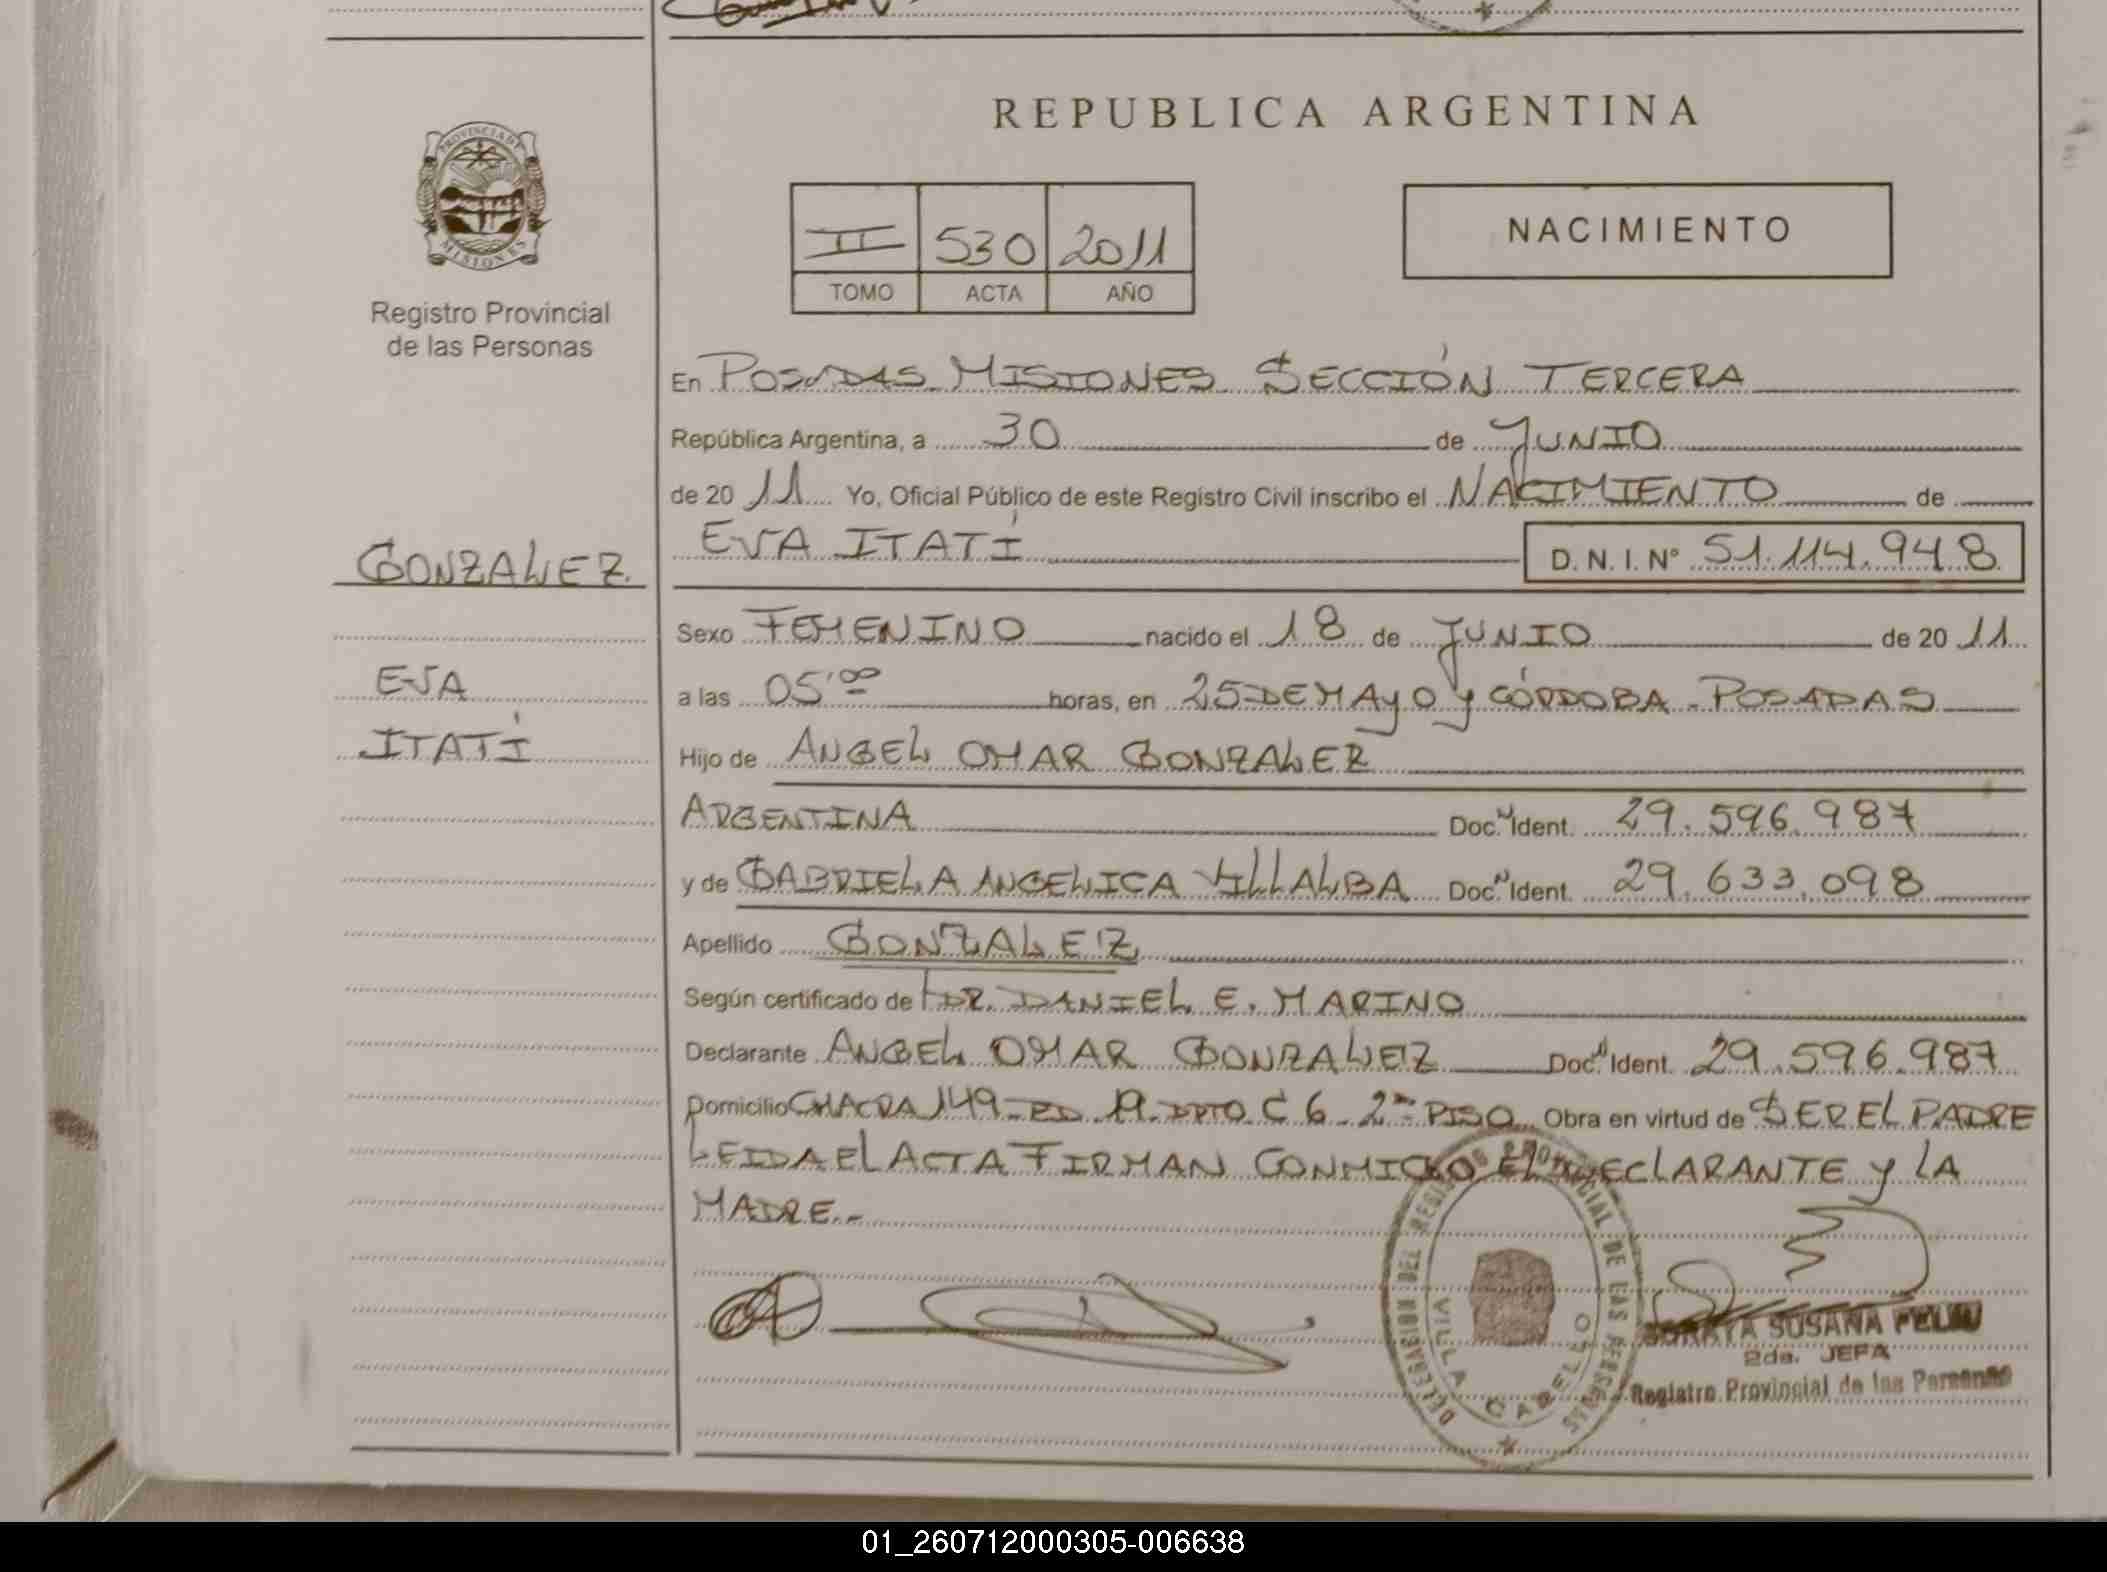 REPUBLICA ARGENTINA
PROVINCIA DE
MISIONES
Registro Provincial
de las Personas
II 530 2011
TOMO ACTA AÑO
NACIMIENTO
En POSADAS MISIONES SECCIÓN TERCERA
República Argentina, a 30 de JUNIO
de 20 11 Yo, Oficial Público de este Registro Civil inscribo el NACIMIENTO de
GONZALEZ
EVA ITATÍ D. N. I. Nº 51.114.948
Sexo FEMENINO nacido el 18 de JUNIO de 20 11
EVA
ITATÍ
a las 05'00 horas, en 25 DE MAYO y CÓRDOBA - POSADAS
Hijo de ANGEL OMAR GONZALEZ
ARGENTINA Doc. Ident. 29.596.987
y de GABRIELA ANGELICA VILLALBA Doc. Ident. 29.633.098
Apellido GONZALEZ
Según certificado de DR. DANIEL E. MARINO
Declarante ANGEL OMAR GONZALEZ Doc. Ident. 29.596.987
Domicilio CHACRA 149 - ED 19 - DPTO C 6 - 2º PISO Obra en virtud de SER EL PADRE
LEIDA EL ACTA FIRMAN CONMIGO EL DECLARANTE y LA
MADRE.-
DELEGACION DEL REGISTRO PROVINCIAL DE LAS PERSONAS
VILLA CABELLO
SORAYA SUSANA FELIU
2da. JEFA
Registro Provincial de las Personas
01_260712000305-006638